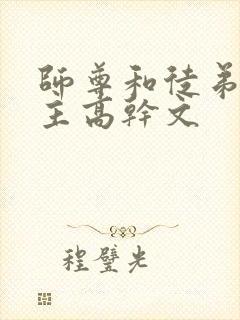 師尊和徒弟
主高幹文
程璧光